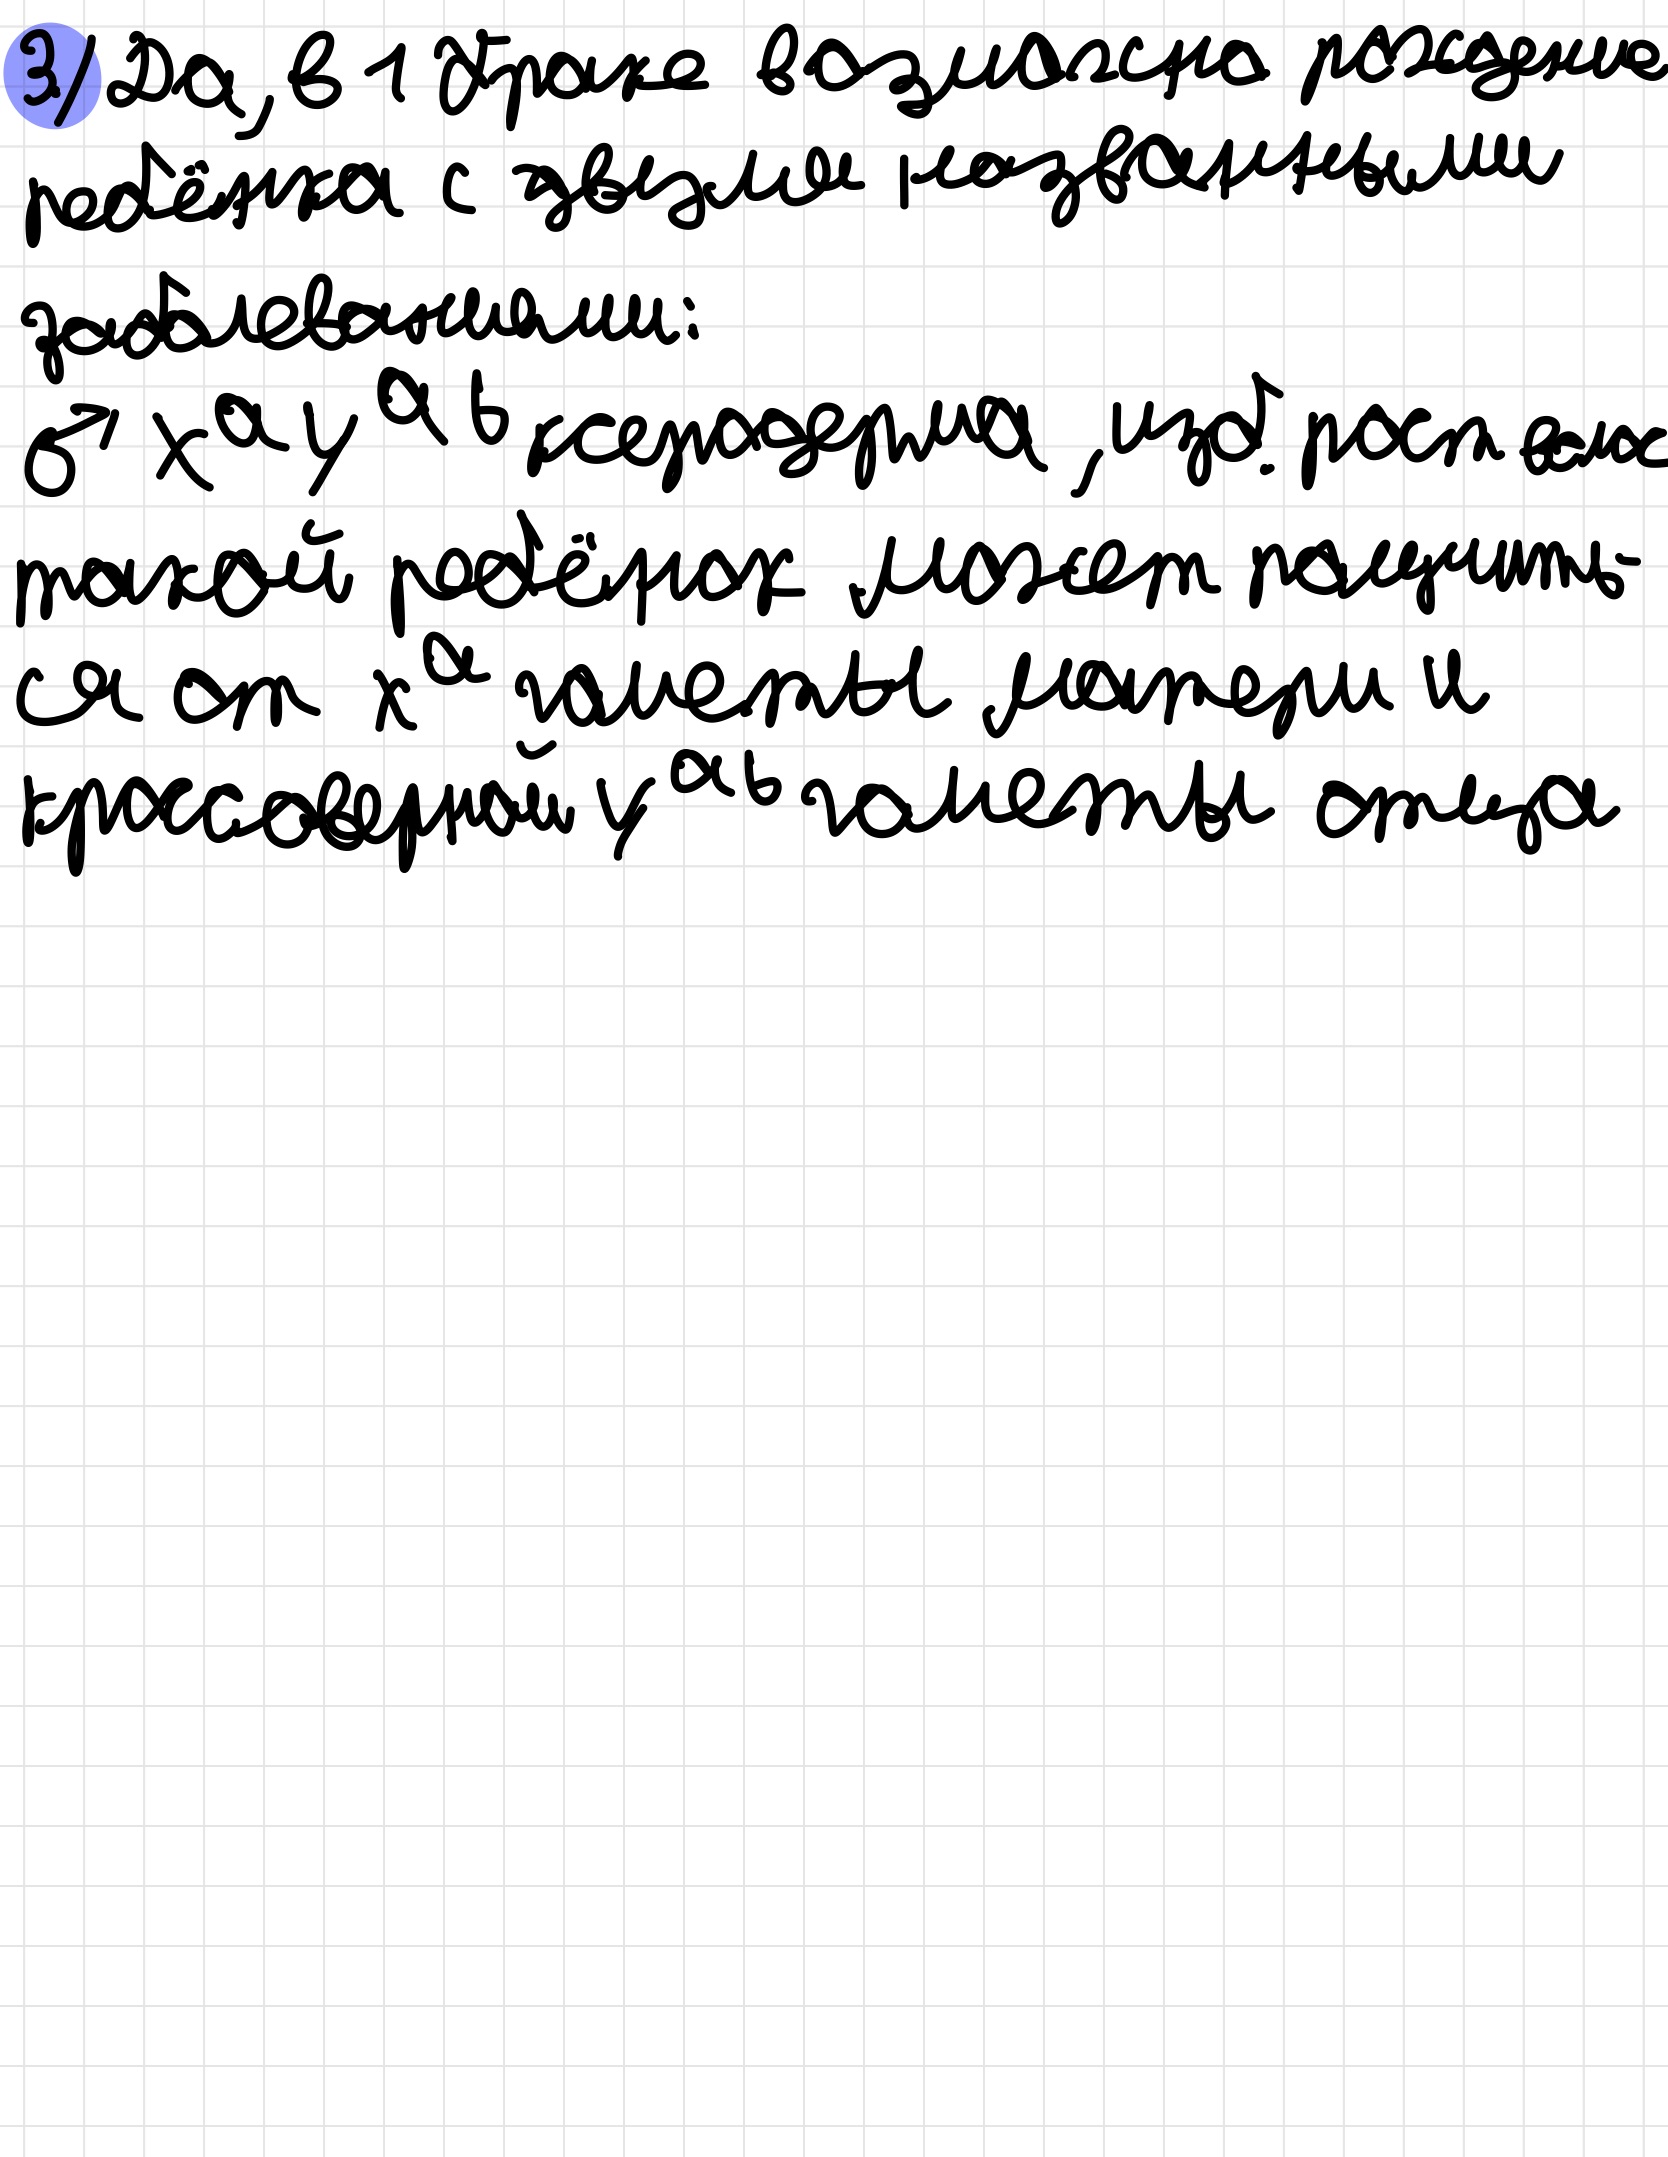 3) Да, в 1 браке возможно рождение
ребёнка с двумя названными
заболеваниями:
♂ xᵃ yᵃᵇ ксеродерма, изб. рост волос
такой ребёнок может получить-
ся от xᵃ гаметы матери и
кроссоверной yᵃᵇ гаметы отца